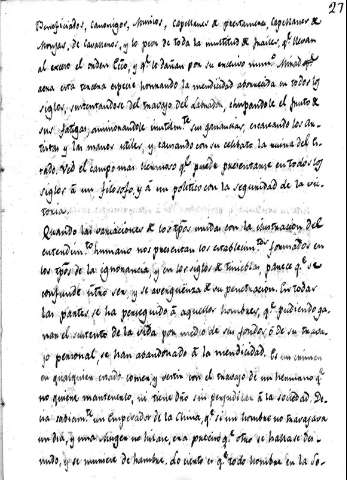 27
Beneficiados, Canonigos, Monjas, Capellanes &
Monjas, de Cavalleros, y lo peor de toda la multitud de frailes, qᵉ llevan
al exceso el orden Ecco, y qᵉ lo dañan por su excesivo numᵒ.
esta tercera especie honrando la mendicidad aborrecida en todos los
siglos, sustentandose del travajo del Labrador, chupandole el fruto de
sus fatigas, aminorandole inutilmᵗᵉ sus ganancias,
y las manos utiles, y causando con su celibato la ruina del Es-
tado. Ved el campo mas hermoso qᵉ puede presentarse en todos los
siglos á un filosofo, y á un politico con la seguridad de la vic-
toria.
Quando las variaciones de los tpos. unidas con la ilustracion del
entendimᵗᵒ humano nos presentan los establecimᵗᵒˢ formados en
los tpos. de la ignorancia, y en los siglos de tinieblas, parece qᵉ se
confunde ntro. ser, y se averguenza de su penetracion. En todas
las partes se ha perseguido á aquellos hombres, qᵉ pudiendo ga-
nar el sustento de la vida por medio de sus fondos, ó de su trava-
jo personal se han abandonado á la mendicidad. Es un crimen
en qualquier estado comer y vestir con el travajo de un hermano qᵉ
no quiere mantenerlo, ni tiene dño sin perjudicar á la sociedad. De-
cia sabiamᵗᵉ un Emperador de la China, qᵉ si un hombre no travajara
un dia, y una Muger no hilare, era preciso qᵉ otro se hallase des-
nudo, y se muriese de hambre. Lo cierto es qᵉ todo hombre en la So-